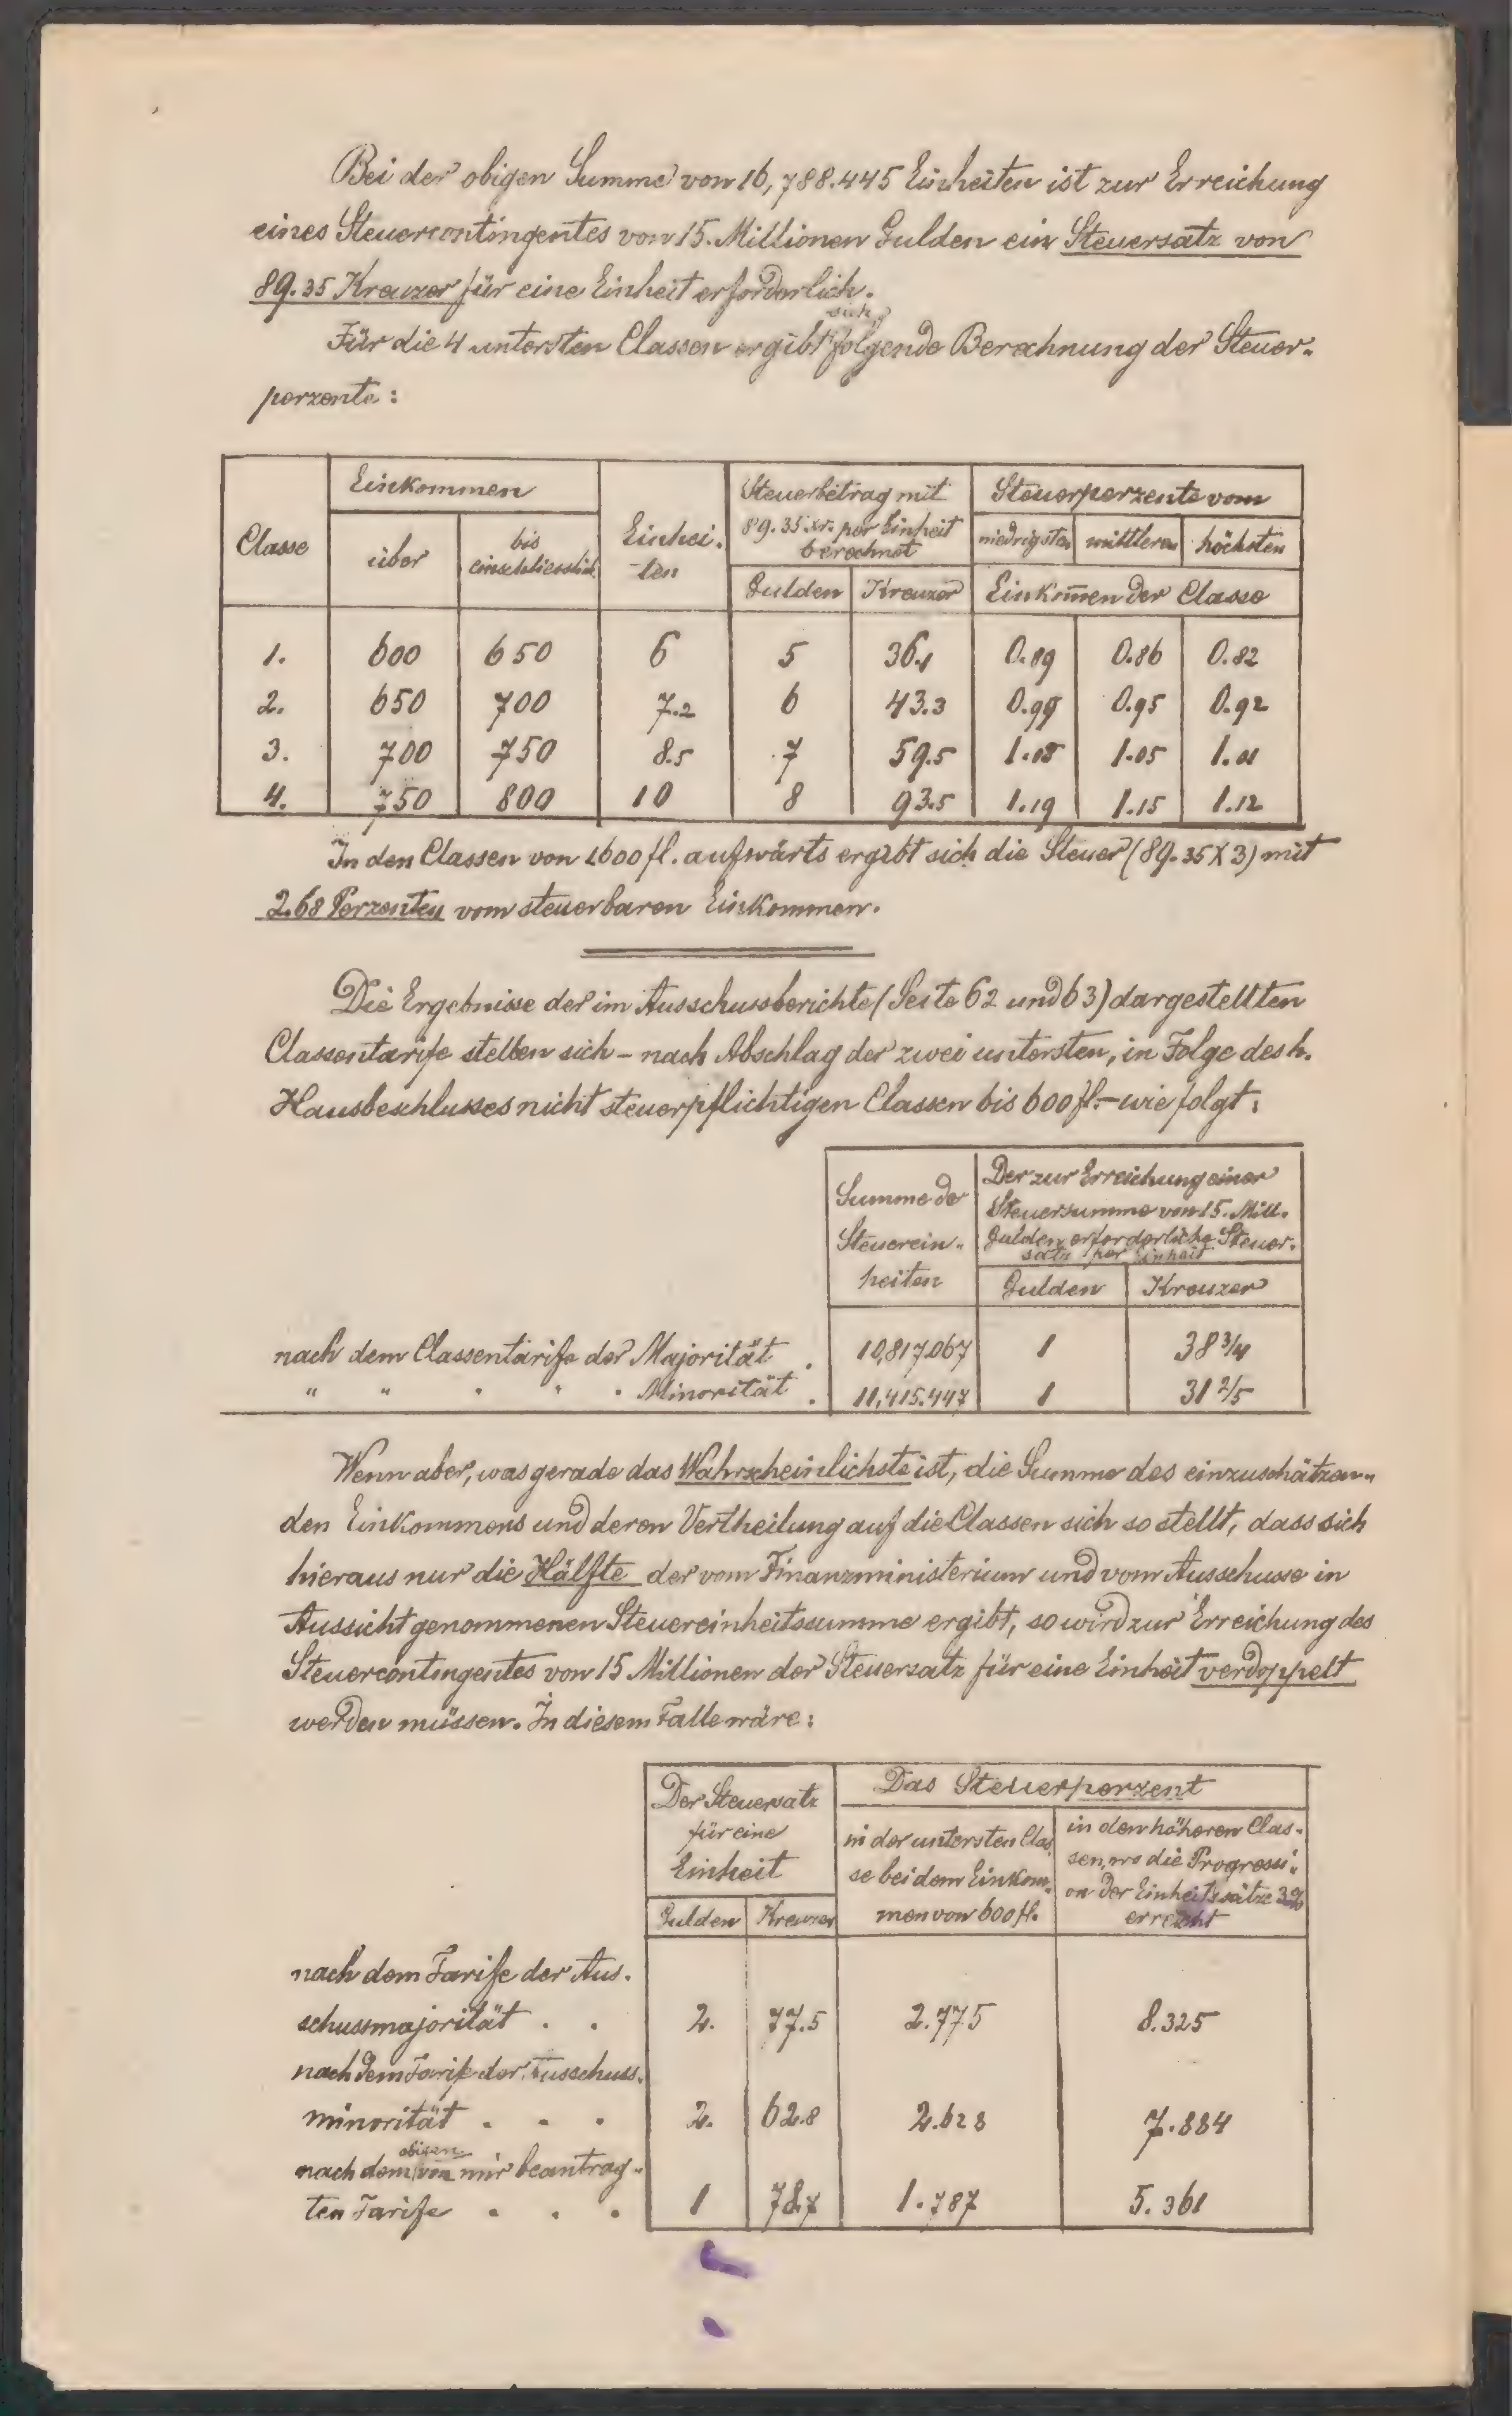 Bei der obigen Summe von 16,788.445 Einheiten ist zur Erreichung
eines Steuercontingentes von 15. Millionen Gulden ein Steuersatz von
89.35 Kreuzer für eine Einheit erforderlich.
Für die 4 untersten Classen ergibt sich folgende Berechnung der Steuer-
perzente:
Classe Einkommen Einhei- Steuerbetrag mit Steuerperzente vom
über bis 89.35 xr. per Einheit niedrigsten mittleren höchsten
einschliesslich -ten berechnet
Gulden Kreuzer Einkom̅en der Classe
1. 600 650 6 5 36.1 0.89 0.86 0.82
2. 650 700 7.2 6 43.3 0.99 0.95 0.92
3. 700 750 8.5 7 59.5 1.08 1.05 1.01
4. 750 800 10 8 93.5 1.19 1.15 1.12
In den Classen von 1600 fl. aufwärts ergibt sich die Steuer (89.35 X 3) mit
2.68 Perzenten vom steuerbaren Einkommen.
Die Ergebnisse der im Ausschussberichte (Seite 62 und 63) dargestellten
Classentarife stellen sich – nach Abschlag der zwei untersten, in Folge des h.
Hausbeschlusses nicht steuerpflichtigen Classen bis 600 fl. – wie folgt:
Summe der Der zur Erreichung einer
Steuersumme von 15. Mill.
Steuerein- Gulden erforderliche Steuer-
satz per Einheit
heiten Gulden Kreuzer
nach dem Classentarife der Majorität . 10,817.067 1 38 3/4
" " " " " Minorität . 11,415.447 1 31 2/5
Wenn aber, was gerade das Wahrscheinlichste ist, die Summe des einzuschätzen-
den Einkommens und deren Vertheilung auf die Classen sich so stellt, dass sich
hieraus nur die Hälfte der vom Finanzministerium und vom Ausschusse in
Aussicht genommenen Steuereinheitssumme ergibt, so wird zur Erreichung des
Steuercontingentes von 15 Millionen der Steuersatz für eine Einheit verdoppelt
werden müssen. In diesem Falle wäre:
Der Steuersatz Das Steuerperzent
für eine in der untersten Clas- in den höheren Clas-
Einheit se bei dem Einkom- sen, wo die Progressi-
on der Einheitssätze 3%
Gulden Kreuzer men von 600 fl. erreicht
nach dem Tarife der Aus-
schussmajorität . . 2. 77.5 2.775 8.325
nach dem Tarife der Ausschuss-
minorität . . . 2. 62.8 2.628 7.884
nach dem obigen von mir beantrag-
ten Tarife . . . 1 78.7 1.787 5.361